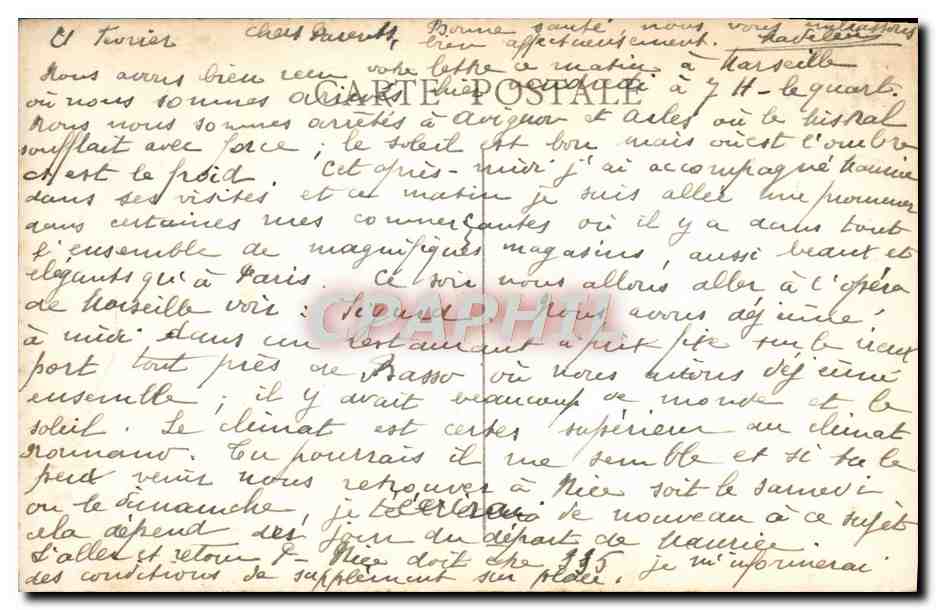 21 Février Chers Parents, Bonne santé, nous vous embrassons
bien affectueusement.
Nous avons bien reçu votre lettre ce matin à Marseille
CARTE POSTALE
où nous sommes arrivés hier vendredi à 7 H - le quart.
Nous nous sommes arrêtés à Avignon et Arles où le Mistral
soufflait avec force ; le soleil est bon mais où est l'ombre
c'est le froid. Cet après-midi j'ai accompagné Maurice
dans ses visites et ce matin je suis allée me promener
dans certaines rues commerçantes où il y a dans tout
l'ensemble de magnifiques magasins, aussi beaux et
élégants qu'à Paris. Ce soir nous allons aller à l'opéra
de Marseille voir : Sigurd. Nous avons déjeuné
CPAPHIL
à midi dans un restaurant à prix fixe sur le vieux
port tout près de Basso où nous avions déjeuné
ensemble ; il y avait beaucoup de monde et le
soleil. Le climat est certes supérieur au climat
romano. Tu pourrais il me semble et si tu le
peux venir nous retrouver à Nice soit le samedi
ou le dimanche, je t'écrirai de nouveau à ce sujet
cela dépend des jours du départ de Maurice.
L'aller et retour P- Nice doit être 335 je m'informerai
des conditions de supplément sur place.